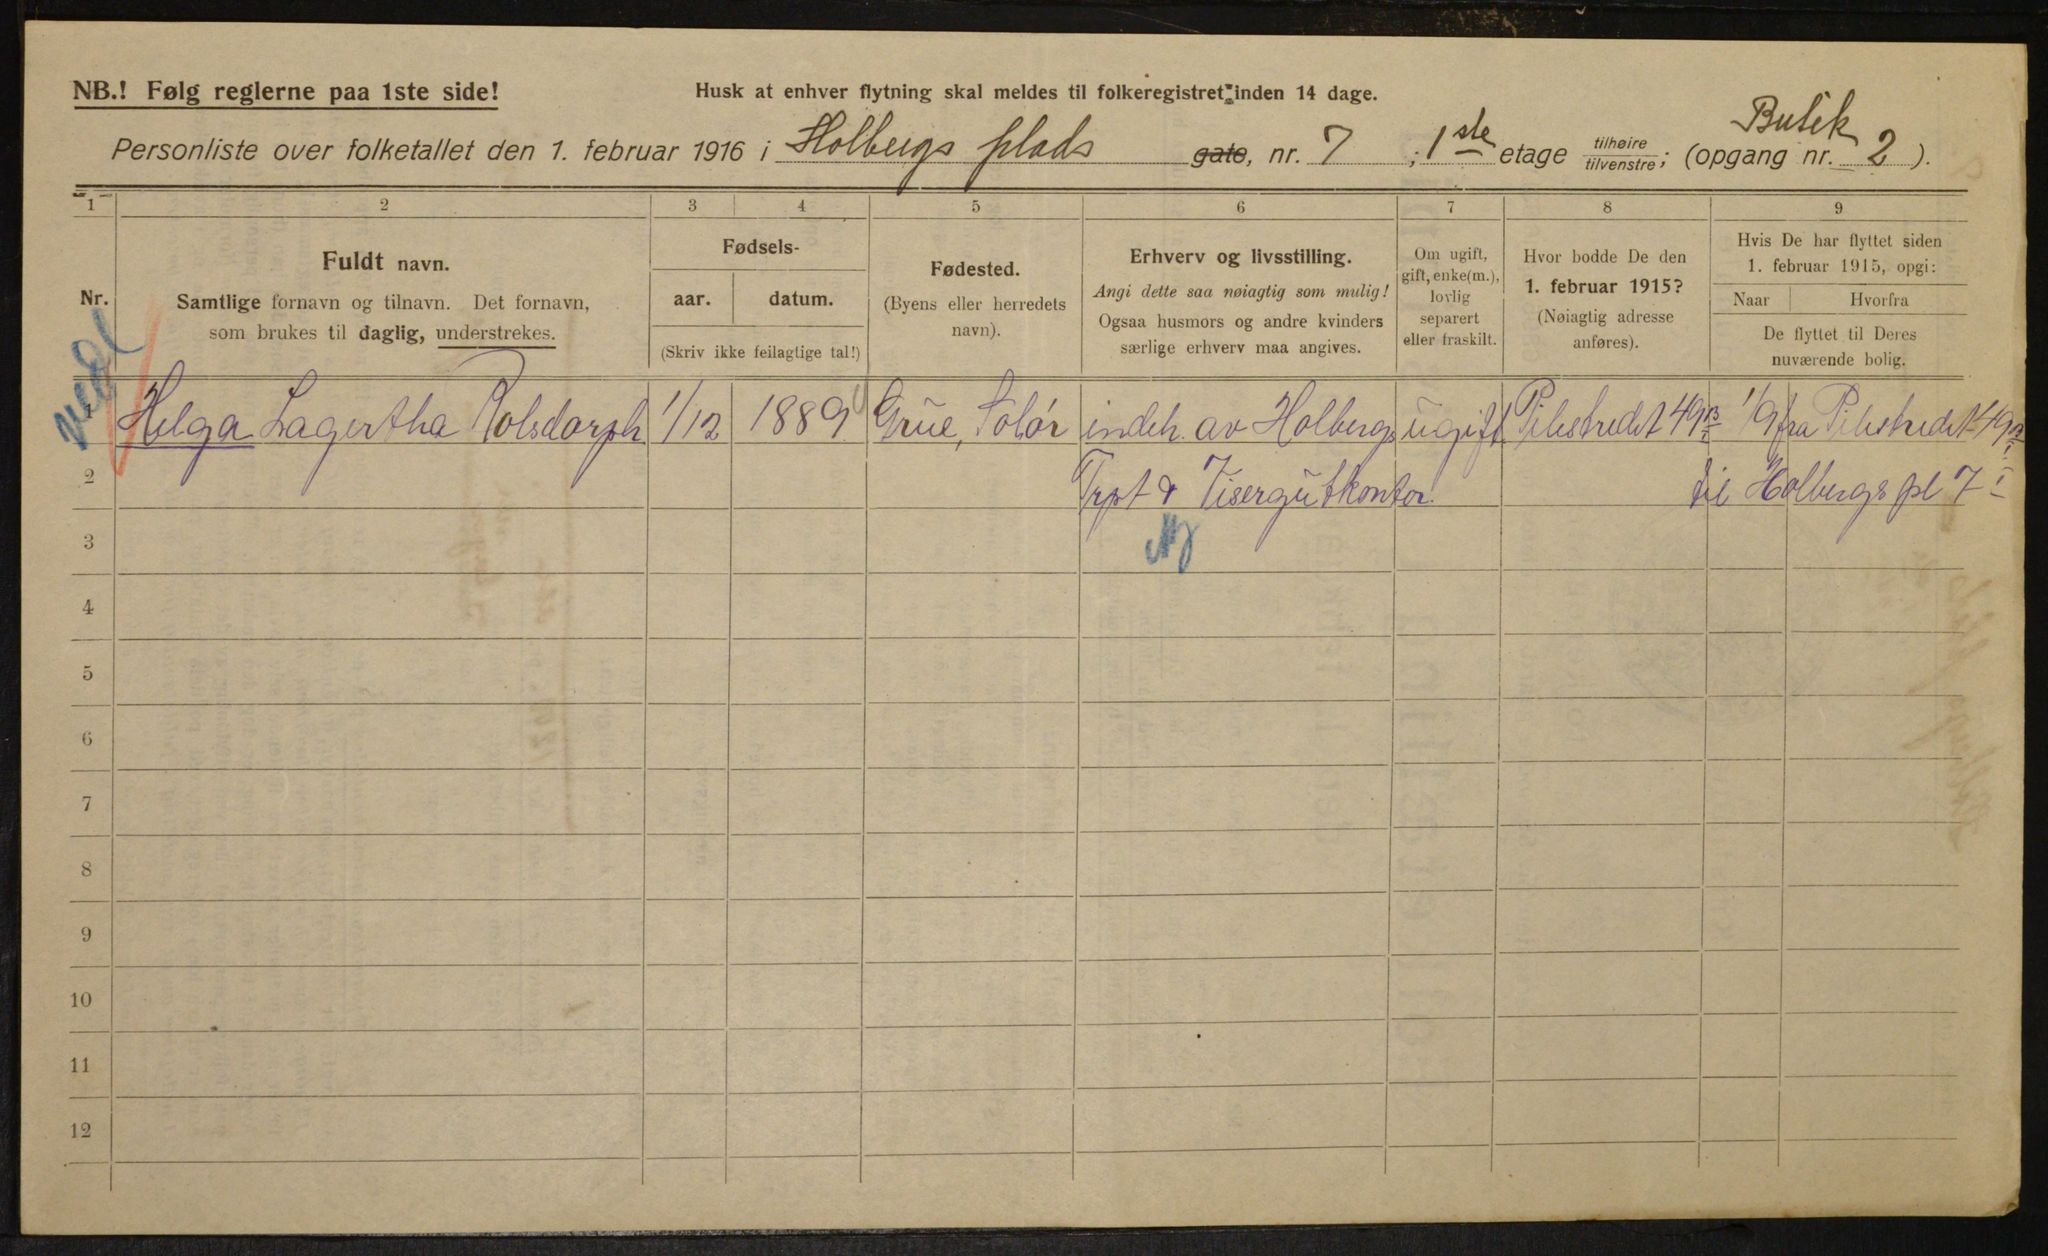 NB.! Følg reglerne paa 1ste side!
Husk at enhver flytning skal meldes til folkeregistret inden 14 dage.
Butik
Personliste over folketallet den 1. februar 1916 i Holbergs plads gate, nr. 7 ; 1ste etage tilhøire/tilvenstre; (opgang nr. 2 ).
1 2 3 4 5 6 7 8 9
Nr.
Fuldt navn.
Samtlige fornavn og tilnavn. Det fornavn,
som brukes til daglig, understrekes.
Fødsels-
aar. datum.
(Skriv ikke feilagtige tal!)
Fødested.
(Byens eller herredets
navn).
Erhverv og livsstilling.
Angi dette saa nøiagtig som mulig!
Ogsaa husmors og andre kvinders
særlige erhverv maa angives.
Om ugift,
gift, enke(m.),
lovlig
separert
eller fraskilt.
Hvor bodde De den
1. februar 1915?
(Nøiagtig adresse
anføres).
Hvis De har flyttet siden
1. februar 1915, opgi:
Naar Hvorfra
De flyttet til Deres
nuværende bolig.
1 Helga Lagertha Rolsdorph 1/12 1889 Grue, Solør indeh. av Holbergs ugift Pilestredet 49 1/9 fra Pilestredet 49
2 Trpt & Visergutkontor. til Holbergs pl 7 I
3
4
5
6
7
8
9
10
11
12